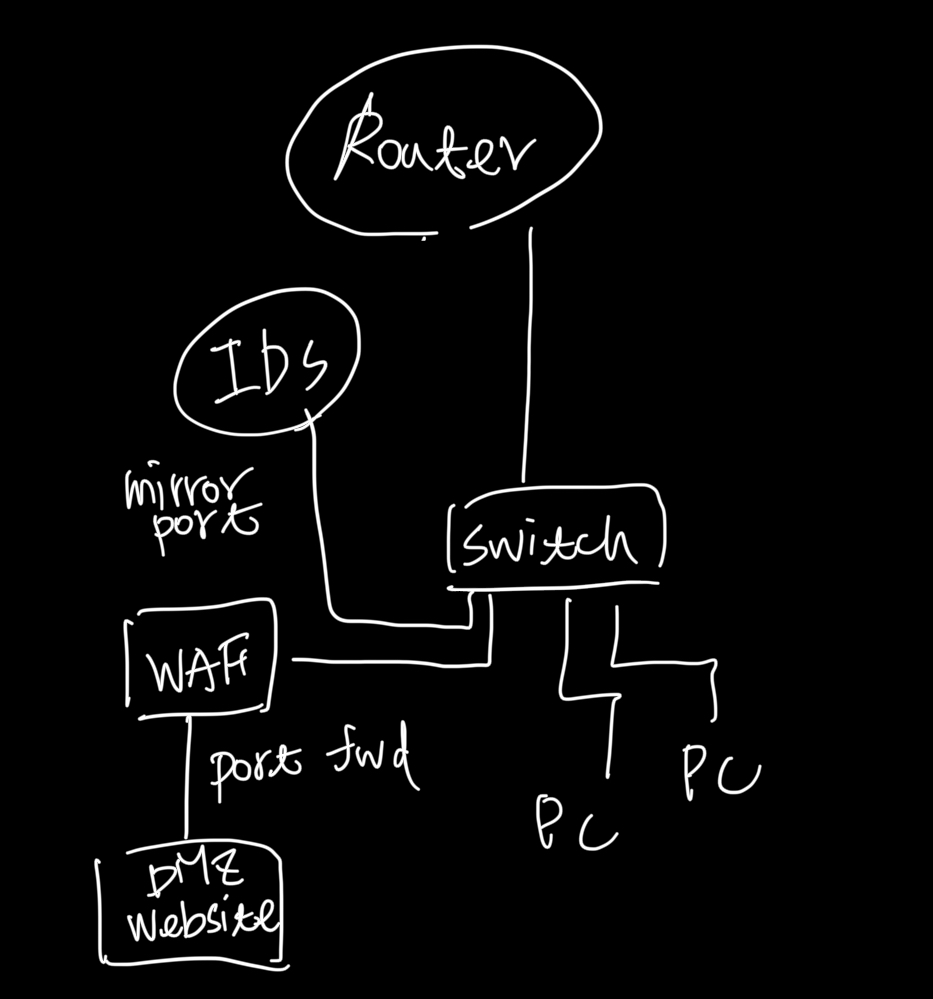 Router
IDS
mirror
port
switch
WAF
port fwd
PC
PC
DMZ
website